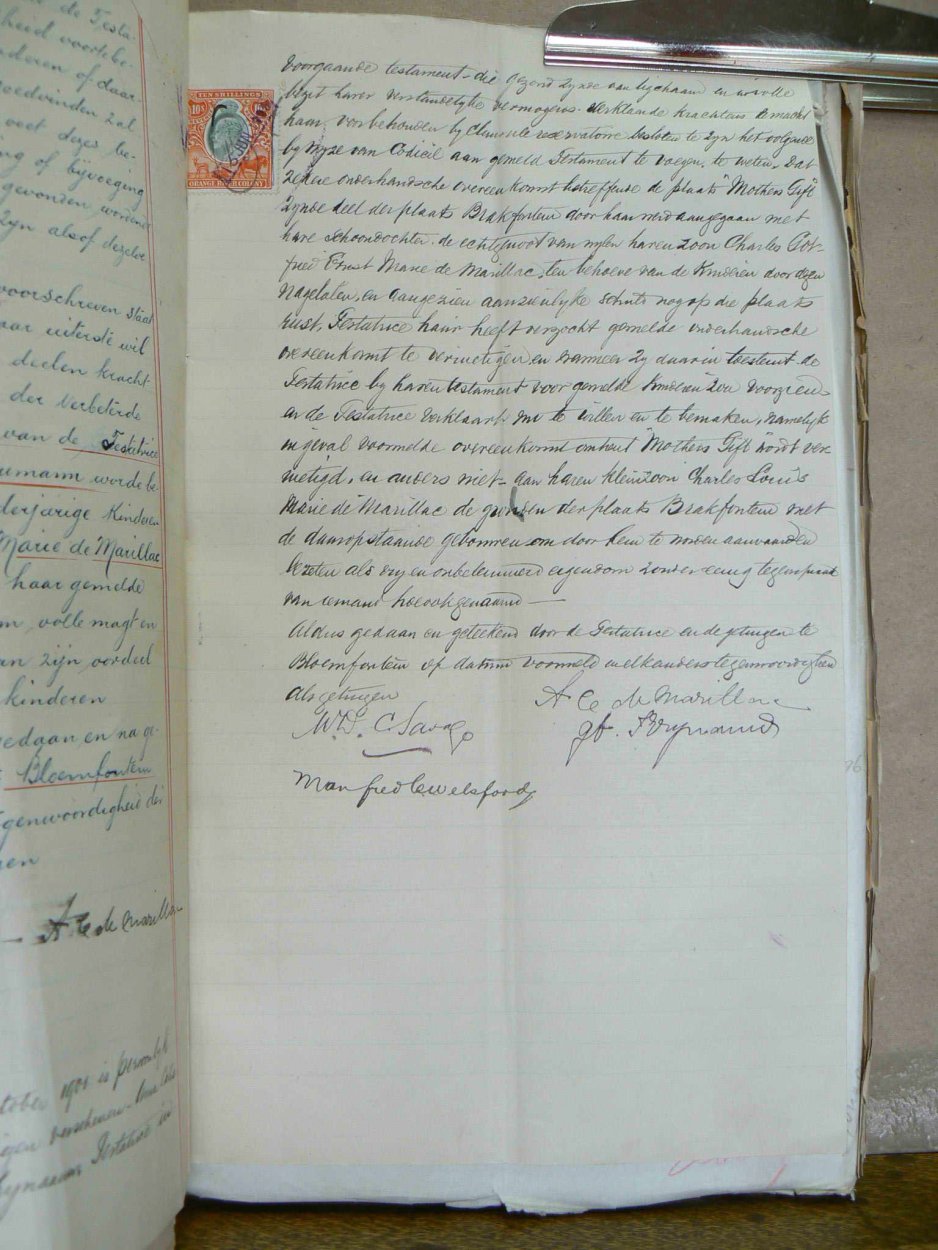 de Testa-
heid voorbe-
nderen of daar-
goedvinden zal
voor deze, be-
ng of bijvoeging
gevonden worden
zijn alsof dezelve
voorschreven staat
aar uiterste wil
deelen kracht
der Verbeterde
van de Testatrice
umann worde be-
derjarige Kinderen
Marie de Marillac
haar gemelde
m, volle magt en
an zijn oordeel
kinderen
gedaan, en na ge-
Bloemfontein
genwoordigheid der
en
A C de Marillac
tober 1901 is persoonlijk
igen verschenen
Testatrice in
TEN SHILLINGS
10s
ORANGE RIVER COLONY
Voorgaande testament die gezond zynde van lighaam en volle
bezit harer verstandelyke vermogens verklaarde krachtens de macht
haar voorbehouden by clausule reservatoire besloten te zyn het volgende
by wyze van Codicil aan gemeld Testament te voegen, te weten, Dat
zekere onderhandsche overeenkomst betreffende de plaats "Mothers Gift"
zynde deel der plaats Brakfontein door haar werd aangegaan met
hare schoondochter de echtgenoot van wylen haren zoon Charles Got-
fried Ernst Marie de Marillac, ten behoeve van de Kinderen door dezen
Nagelaten, en aangezien aanzienlyke schuld nog op die plaats
rust, Testatrice haar heeft verzocht gemelde onderhandsche
overeenkomst te vernietigen, en wanneer zy daarin toestemt de
Testatrice by haren testament voor gemelde Kinderen zou voorzien
en de Testatrice verklaart nu te willen en te bemaken, namelyk
in geval voormelde overeenkomst omtrent "Mothers Gift" wordt ver-
nietigd, en anders niet - aan haren kleinzoon Charles Louis
Marie de Marillac de gronden der plaats Brakfontein met
de daaropstaande gebouwen om door hem te worden aanvaarden
bezeten als vry en onbelemmerd eigendom zonder eenig tegenspraak
van iemand hoe ook genaamd —
Aldus gedaan en geteekend door de Testatrice en de getuigen te
Bloemfontein op datum voormeld in elkanders tegenwoordigheid
Als getuigen
A C de Marillac
W. D. C. Savage